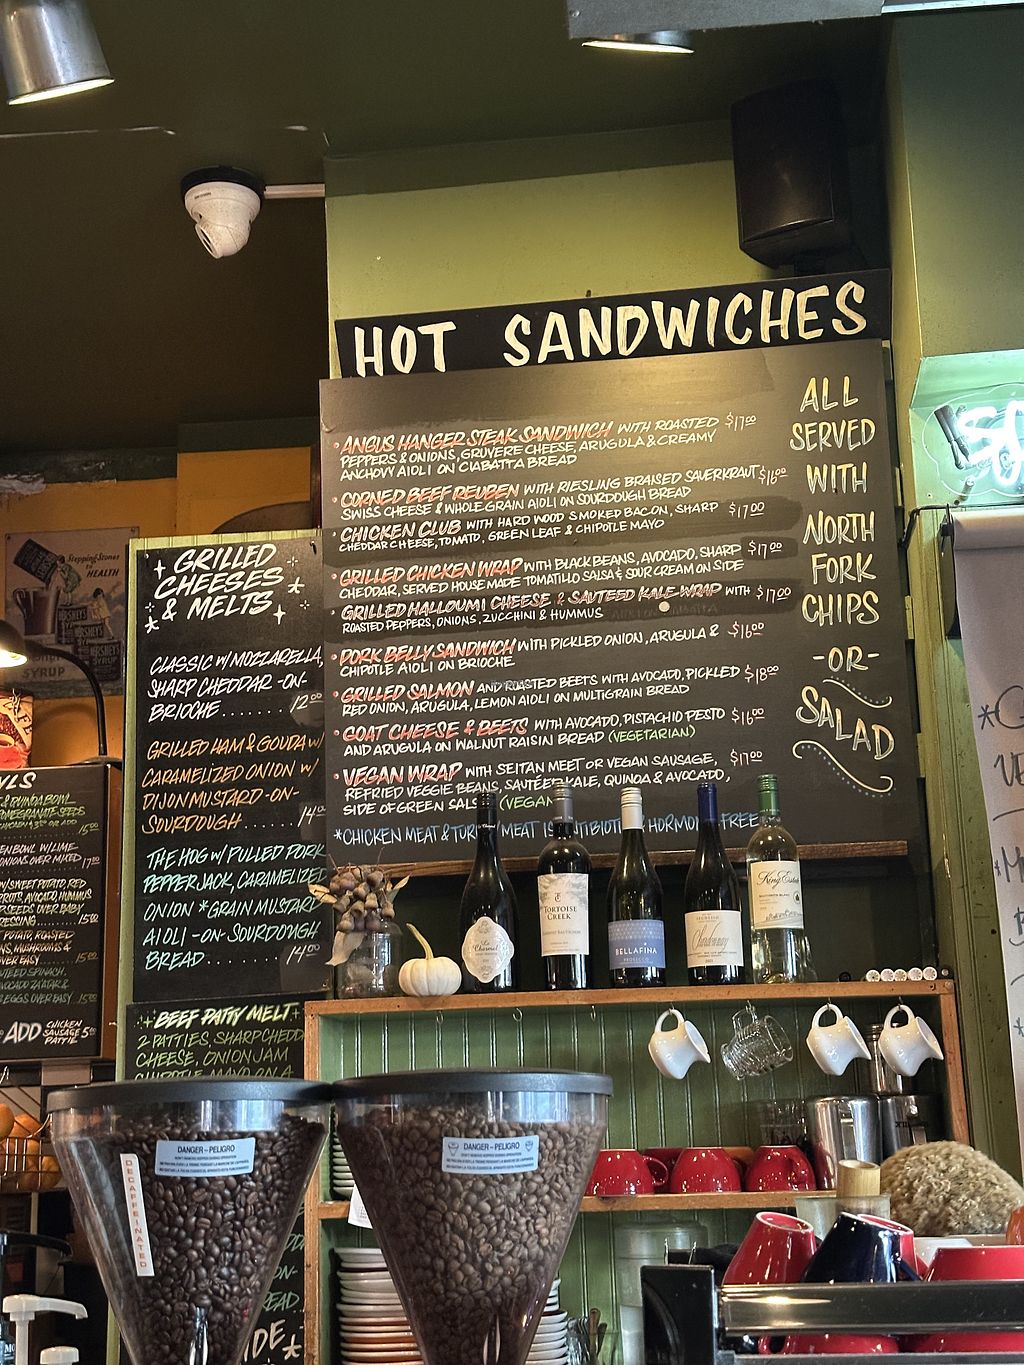 HOT SANDWICHES
• ANGUS HANGER STEAK SANDWICH WITH ROASTED $17.00
PEPPERS & ONIONS, GRUYERE CHEESE, ARUGULA & CREAMY
ANCHOVY AIOLI ON CIABATTA BREAD
• CORNED BEEF REUBEN WITH RIESLING BRAISED SAUERKRAUT $16.00
SWISS CHEESE & WHOLE GRAIN AIOLI ON SOURDOUGH BREAD
• CHICKEN CLUB WITH HARD WOOD SMOKED BACON, SHARP $17.00
CHEDDAR CHEESE, TOMATO, GREEN LEAF & CHIPOTLE MAYO
• GRILLED CHICKEN WRAP WITH BLACK BEANS, AVOCADO, SHARP $17.00
CHEDDAR, SERVED HOUSE MADE TOMATILLO SALSA & SOUR CREAM ON SIDE
• GRILLED HALLOUMI CHEESE & SAUTEED KALE WRAP WITH $17.00
ROASTED PEPPERS, ONIONS, ZUCCHINI & HUMMUS
• PORK BELLY SANDWICH WITH PICKLED ONION, ARUGULA & $16.00
CHIPOTLE AIOLI ON BRIOCHE
• GRILLED SALMON AND ROASTED BEETS WITH AVOCADO, PICKLED $18.00
RED ONION, ARUGULA, LEMON AIOLI ON MULTIGRAIN BREAD
• GOAT CHEESE & BEETS WITH AVOCADO, PISTACHIO PESTO $16.00
AND ARUGULA ON WALNUT RAISIN BREAD (VEGETARIAN)
• VEGAN WRAP WITH SEITAN MEET OR VEGAN SAUSAGE, $17.00
REFRIED VEGGIE BEANS, SAUTÉED KALE, QUINOA & AVOCADO,
SIDE OF GREEN SALS (VEGAN
*CHICKEN MEAT & TUR MEAT IS ANTIBIOTI & HORMON FREE
ALL
SERVED
WITH
NORTH
FORK
CHIPS
-OR-
SALAD
GRILLED
CHEESES
& MELTS
CLASSIC W/ MOZZARELLA,
SHARP CHEDDAR -ON-
BRIOCHE........ 12.00
GRILLED HAM & GOUDA W/
CARAMELIZED ONION W/
DIJON MUSTARD -ON-
SOURDOUGH ....... 14.00
THE HOG W/ PULLED PORK
PEPPERJACK, CARAMELIZED
ONION *GRAIN MUSTARD
AIOLI -ON- SOURDOUGH
BREAD........ 14.00
BEEF PATTY MELT
2 PATTIES, SHARP CHEDD
CHEESE, ONION JAM
CHIPOTLE MAYO ON A
Stepping-Stones
to
HEALTH
HERSHEY'S
SYRUP
WLS
15.00
17.00
SWEET POTATO, RED
AVOCADO, HUMMUS
OVER BABY
15.00
POTATO, ROASTED
MUSHROOMS &
OVER EASY 15.00
SPINACH,
AVOCADO ZA'ATAR &
EGGS OVER EASY 15.00
ADD CHICKEN
SAUSAGE 5.00
PATTIE
La
Charmel
TORTOISE
CREEK
BELLAFINA
PROSECCO
Chardonnay
King Estate
DANGER – PELIGRO
DANGER – PELIGRO
DECAFFEINATED